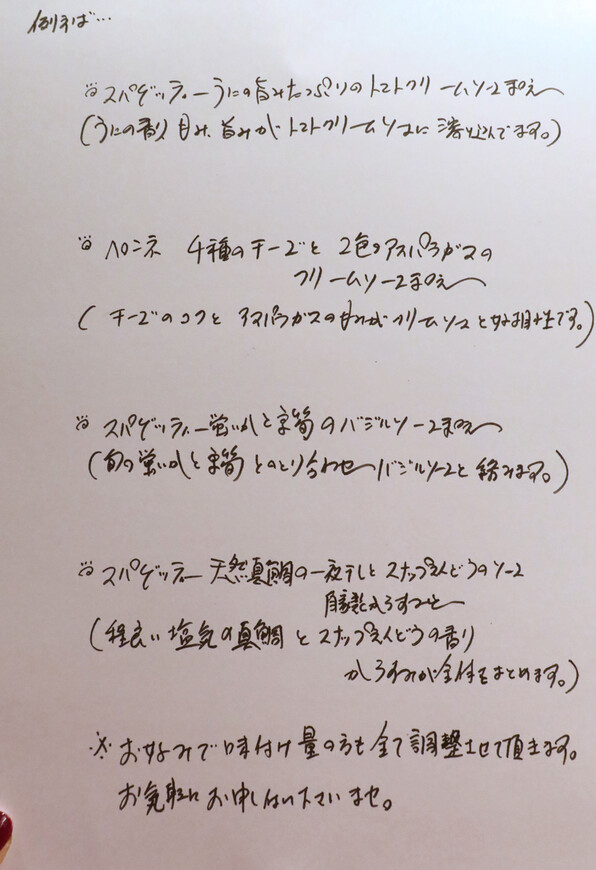 例えば…
スパゲッティー うにの旨みたっぷりのトマトクリームソースまかえ〜
(うにの香り 甘み、旨みがトマトクリームソースに溶け込んでます。)
ペンネ 4種のチーズと 2色のアスパラガスの
クリームソースまかえ〜
(チーズのコクと アスパラガスの甘みがクリームソースと好相性です。)
スパゲッティー 蛍いかと京筍のバジルソースまかえ〜
(旬の蛍いかと京筍とのとり合わせ〜バジルソースと絡みます。)
スパゲッティー 天然真鯛の一夜干しと スナップえんどうのソース
からすみと〜
(程良い塩気の真鯛とスナップえんどうの香り
からすみが全体をまとめます。)
※お好みで味付け量の方も全て調整させて頂きます。
お気軽にお申し付け下さいませ。